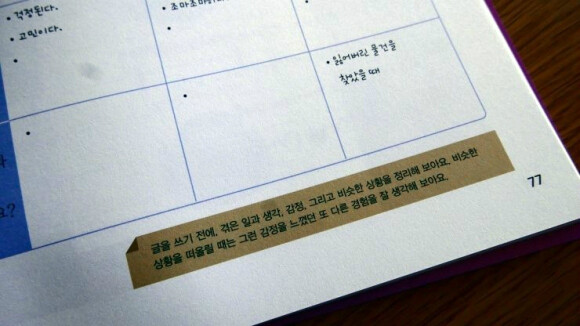 • 걱정된다.
• 고민이다.
•
•
• 잃어버린 물건을
찾았을 때
•
•
요?
글을 쓰기 전에, 겪은 일과 생각, 감정, 그리고 비슷한 상황을 정리해 보아요. 비슷한
상황을 떠올릴 때는 그런 감정을 느꼈던 또 다른 경험을 잘 생각해 보아요.
77